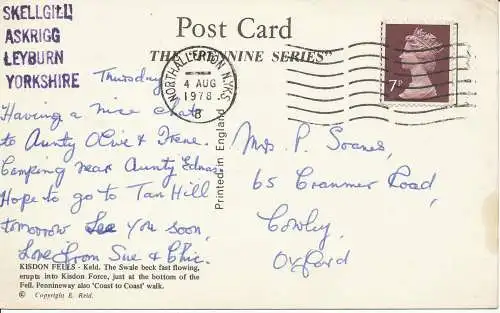 SKELLGILL
ASKRIGG
LEYBURN
YORKSHIRE
Post Card
THE "PENNINE SERIES"
NORTHALLERTON N. YKS.
4 AUG
1978
B
7P
Printed in England
Thursday
Having a nice chat
to Aunty Olive & Irene.
Camping near Aunty Ednas
Hope to go to Tan Hill
tomorrow See you soon,
Love from Sue & Chic.
Mrs P. Soanes,
65 Cranmer Road,
Cowley,
Oxford
KISDON FELLS - Keld. The Swale beck fast flowing,
erupts into Kisdon Force, just at the bottom of the
Fell. Pennineway also 'Coast to Coast' walk.
© Copyright E. Reid.